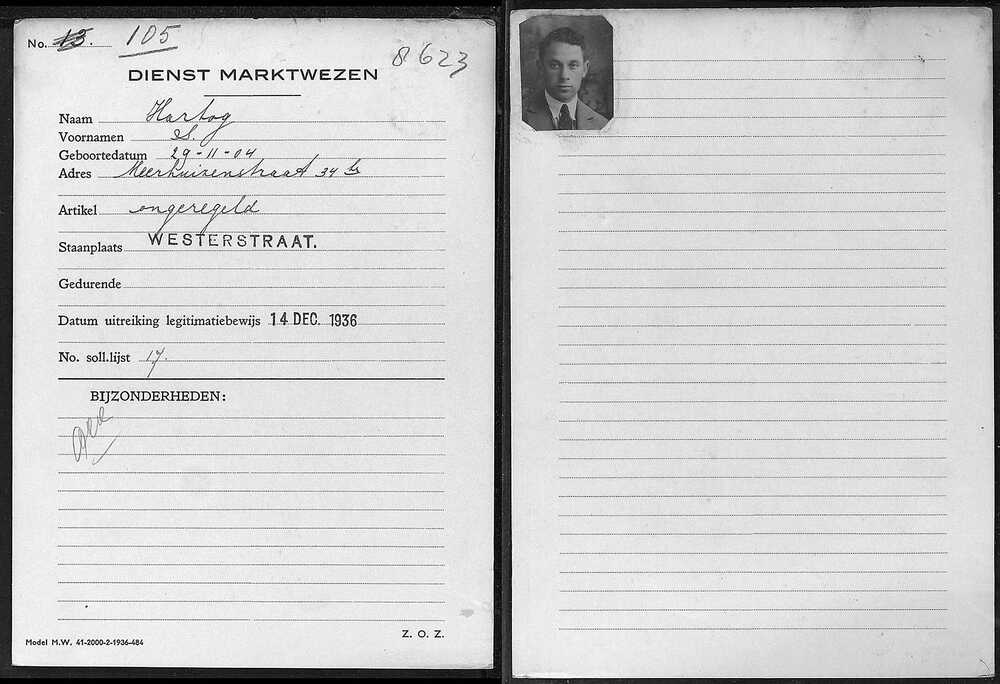 No. 13. 105
8623
DIENST MARKTWEZEN
Naam Hartog
Voornamen S.
Geboortedatum 29-11-04
Adres Meerhuizenstraat 34 hs
Artikel ongeregeld
Staanplaats WESTERSTRAAT.
Gedurende
Datum uitreiking legitimatiebewijs 14 DEC. 1936
No. soll.lijst 17.
BIJZONDERHEDEN:
Z. O. Z.
Model M.W. 41-2000-2-1936-484